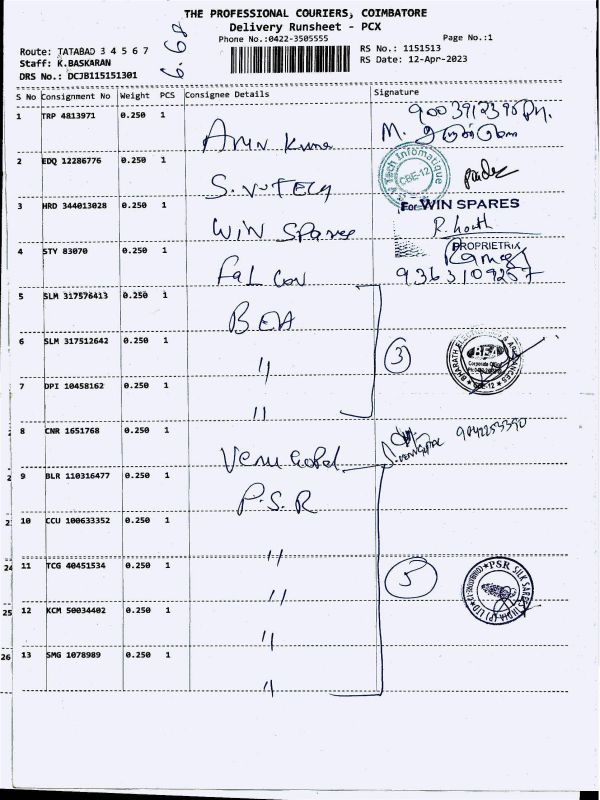 THE PROFESSIONAL COURIERS, COIMBATORE
Delivery Runsheet - PCX
Phone No.:0422-3505555
Page No.:1
Route: TATABAD 3 4 5 6 7
Staff: K.BASKARAN
DRS No.: DCJB115151301
6.68
RS No.: 1151513
RS Date: 12-Apr-2023
S No Consignment No Weight PCS Consignee Details Signature
1 TRP 4813971 0.250 1 Arun Kumar
M.
2 EDQ 12286776 0.250 1 S.V-TECH
Tech Infomatique CBE-12
3 HRD 344013028 0.250 1 WIN Spares
For WIN SPARES
PROPRIETRIX
4 STY 83070 0.250 1 Falcon
9363109257
5 SLM 317576413 0.250 1 BEA
6 SLM 317512642 0.250 1 "
3
BEA
7 DPI 10458162 0.250 1 "
8 CNR 1651768 0.250 1 Venu Gopal
9 BLR 110316477 0.250 1 P.S.R
10 CCU 100633352 0.250 1 "
24 11 TCG 40451534 0.250 1 "
5
PSR SILK SAREES INDIA (P) LTD
25 12 KCM 50034402 0.250 1 "
26 13 SMG 1078989 0.250 1 "